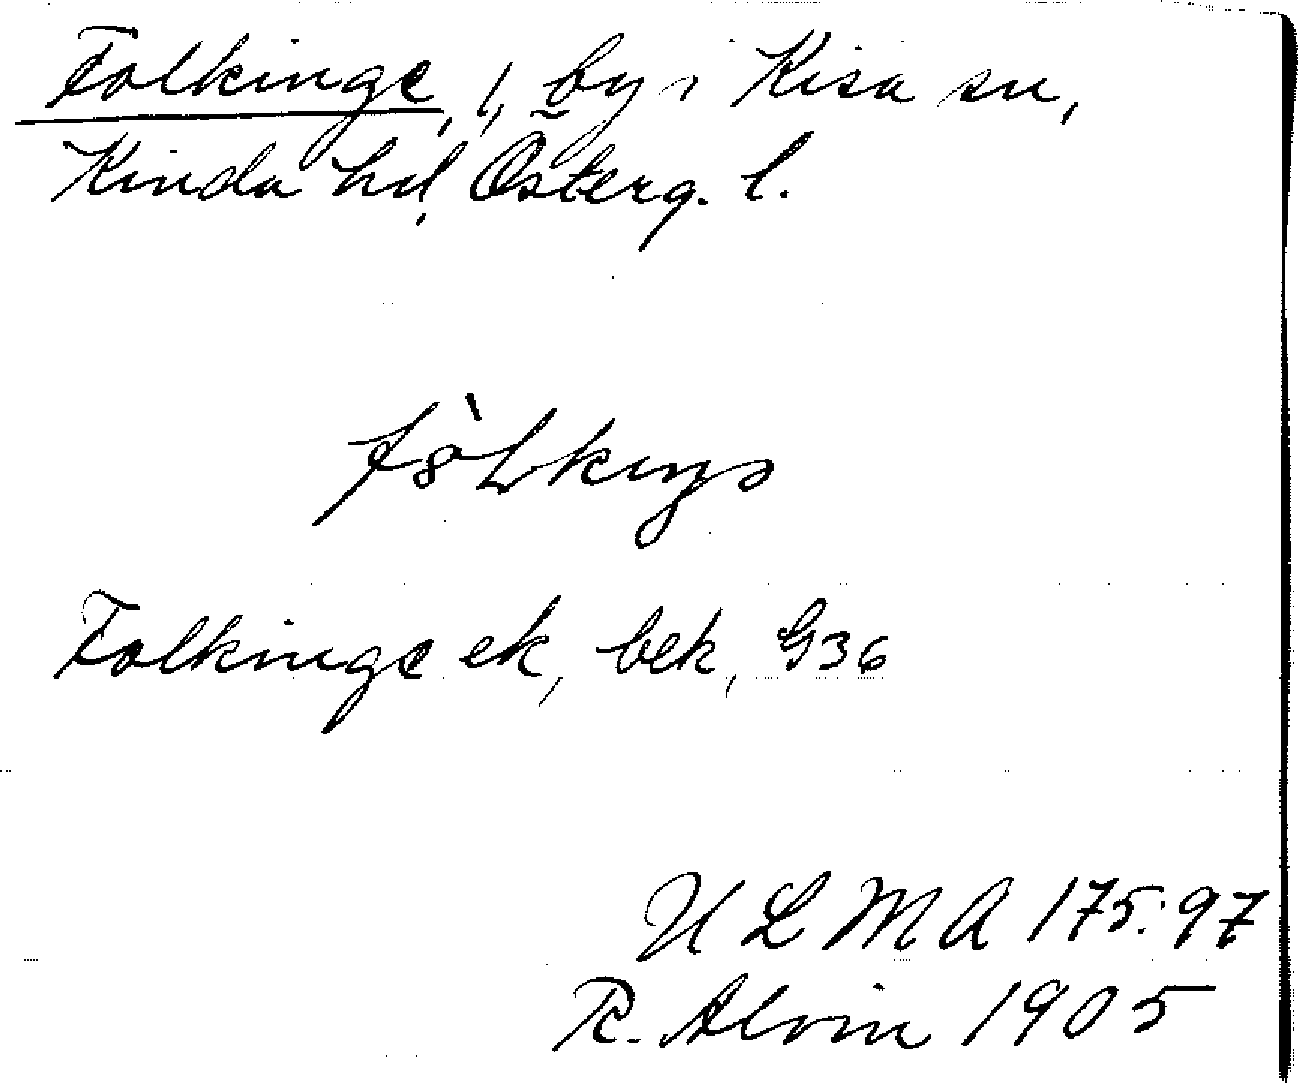 Folkinge, 1, by i Kisa sn,
Kinda hd, Österg. l.
Folkinge ek, bek, G36
ULMA 175:97
R. Alvin 1905